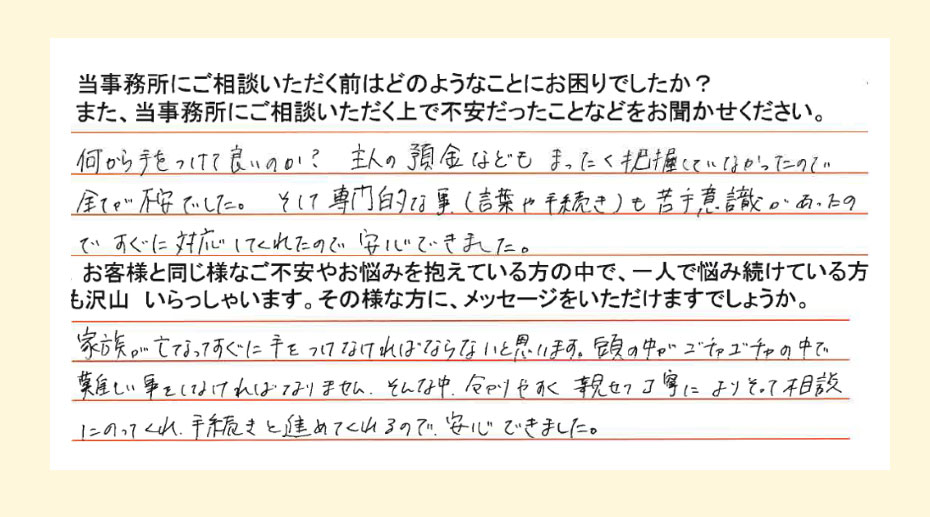 当事務所にご相談いただく前はどのようなことにお困りでしたか？
また、当事務所にご相談いただく上で不安だったことなどをお聞かせください。
何から手をつけて良いのか？ 主人の預金などもまったく把握していなかったので
全てが不安でした。 そして専門的な事（言葉や手続き）も苦手意識があったの
ですぐに対応してくれたので安心できました。
お客様と同じ様なご不安やお悩みを抱えている方の中で、一人で悩み続けている方
も沢山 いらっしゃいます。その様な方に、メッセージをいただけますでしょうか。
家族が亡なってすぐに手をつけなければならないと思います。頭の中がゴチャゴチャの中で
難しい事をしなければなりません。そんな中、分かりやすく親切丁寧によりそって相談
にのってくれ、手続きと進めてくれるので、安心できました。